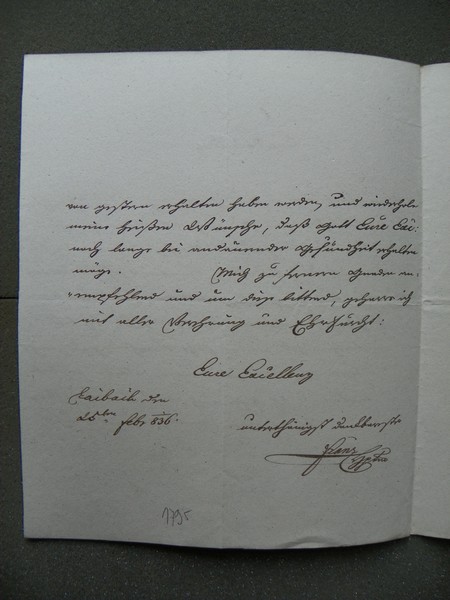 von gestern erhalten haben werden, und wiederhole
meine heißen Wünsche, daß Gott Eure Exc.
noch lange bei andauernder Gesundheit erhalten
möge. Mich zu fernern Gnaden
empfehlend und um diese bittend, geharre ich
mit aller Verehrung und Ehrfurcht:
Eure Excellenz
Laibach den
25ten Feb. 836.
unterthänigst dankbarster
Franz
1795